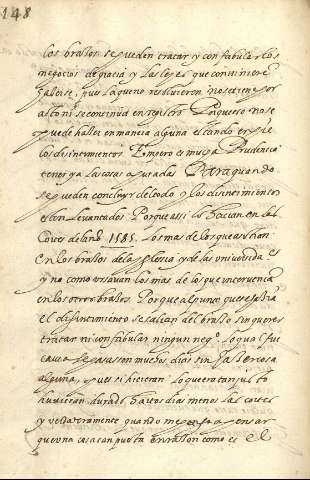 148
los brassos se pueden tractar y confabular los
negocios de gracia y las leyes que conviniere
hacerse, pues la que no resolvieron no se tiene por
acto ni se continua en registro Porque esso no se
puede hacer en manera alguna estando en pie
los disintimientos Empero es mucha Prudencia
tener ya las cosas apuradas Para quando
se pueden concluyr del todo y los disintimientos
esten levantados. Porque assi lo hacian en las
Cortes del año 1585. los mas de los que assistian
en los brassos de la yglesia y de las universidades
y no como usavan los mas de los que intervenian
en los otros brassos. Porque algunos que se ponia
el disintimiento se salian del brasso sin querer
tratar ni confabular ningun neg.º lo qual fue
causa se passasson muchos dias sin hacer cosa
alguna, pues si hicieran lo que era tan justo
huvieran durado hartos dias menos las cortes
y verdaderamente quando me pongo a pensar
que una cosa tan puesta en rasson como es el